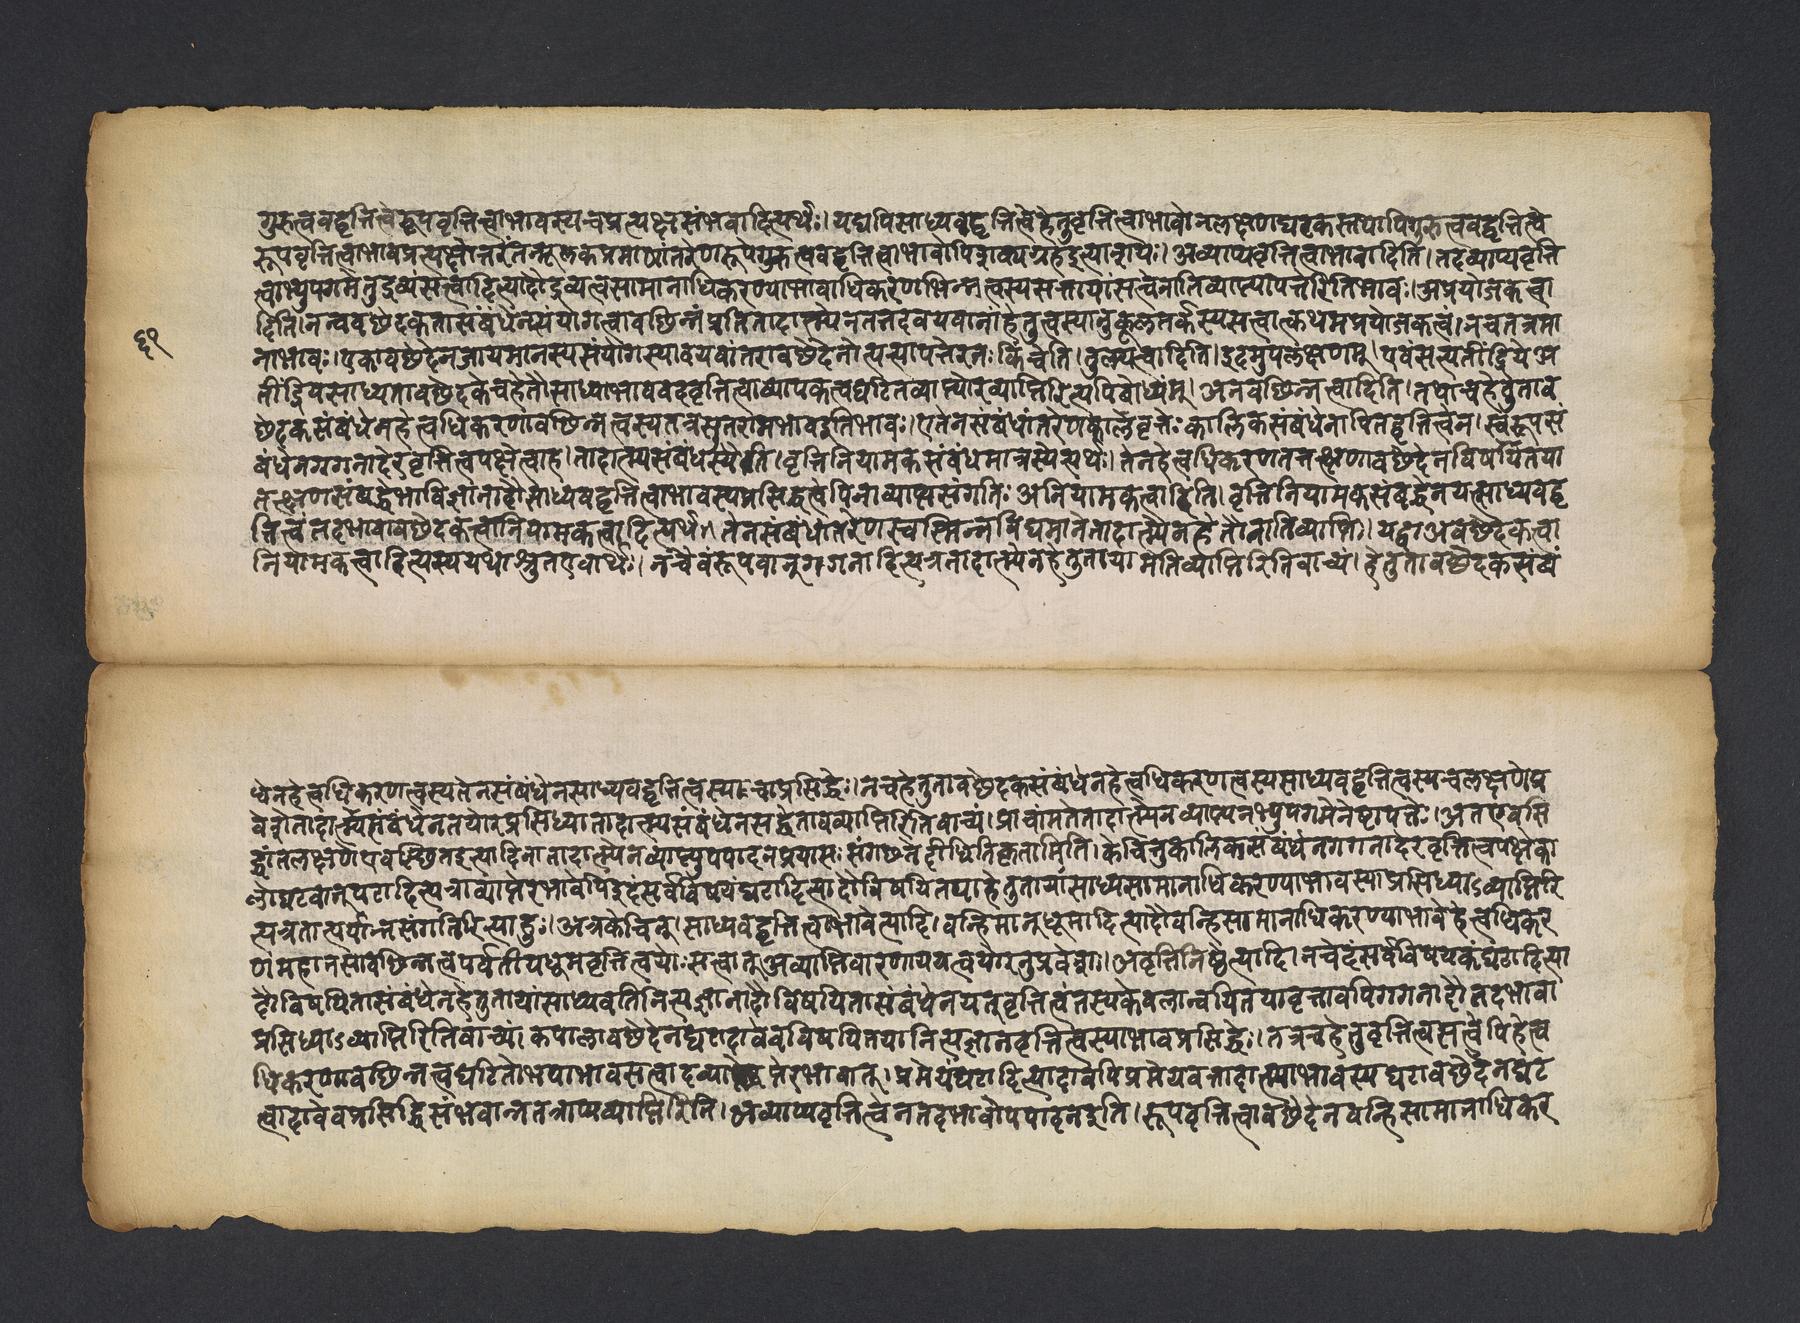 गुरुत्ववद्वृत्तित्वे रूपवृत्तित्वाभावस्य च प्रत्यक्षासंभवादित्यर्थः। यद्यपि साध्यवद्वृत्तित्वे हेतुवृत्तित्वाभावो न लक्षणघटकस्तथापि गुरुत्ववद्वृत्तित्वे
रूपवृत्तित्वाभावप्रत्यक्षोत्तरं तन्मूलकप्रमाणांतरेण रूपे गुरुत्ववद्वृत्तित्वाभावोपि शक्यग्रह इत्याशयः। अव्याप्यवृत्तित्वाभावादिति। तदव्याप्यवृत्ति
त्वाभ्युपगमे तु द्रव्यं सत्त्वादित्यादौ द्रव्यत्वसामानाधिकरण्याभावाधिकरणभिन्नत्वस्य सत्तायां सत्वेनातिव्याप्त्यापत्तेरिति भावः। अप्रयोजकत्वा
दिति। नन्ववच्छेदकतासंबंधेन संयोगत्वावच्छिन्नं प्रति तादात्म्येन तत्तदवयवानां हेतुत्वस्यानुकूलतर्कस्य सत्वात्कथमप्रयोजकत्वं। न च तत्र मा
नाभावः। एकावच्छेदेन जायमानस्य संयोगस्यावयवांतरावच्छेदेनोत्पत्त्यापत्तेरतः किंचेति। तुल्यत्वादिति। इदमुपलक्षणम्। एवं सत्यतींद्रिये अ
तींद्रियसाध्यतावच्छेदके च हेतौ साध्याभाववदवृत्तित्वाव्यापकत्वघटितव्याप्त्योरव्याप्तिरित्यपि बोध्यम्। अनवच्छिन्नत्वादिति। तथा च हेतुताव
च्छेदकसंबंधेन हेत्वधिकरणावच्छिन्नत्वस्य तत्र सुतरामभाव इति भावः। एतेन संबंधांतरेण काले वृत्तेः कालिकसंबंधेनापि तद्वृत्तित्वेन। स्वरूपसं
बंधेन गगनादेरवृत्तित्वपक्षे त्वाह। तादात्म्यसंबंधस्येति। वृत्तिनियामकसंबंधमात्रस्येत्यर्थः। तेन हेत्वधिकरणतत्तत्क्षणावच्छेदेन विषयितया
तत्क्षणसंबद्धभाविज्ञानादौ साध्यवद्वृत्तित्वाभावस्य प्रसिद्धत्वेपि नाव्याप्त्यसंगतिः अनियामकत्वादिति। वृत्तिनियामकसंबंधेन यत्साध्यवद्वृ
त्तित्वं तदभावावच्छेदकत्वानियामकत्वादित्यर्थः। तेन संबंधांतरेण स्वस्मिन्नविद्यमाने तादात्म्येन हेतौ नातिव्याप्तिः। यद्वा अवच्छेदकत्वा
नियामकत्वादित्यस्य यथाश्रुत एवार्थः। न चैवं रूपवान् गगनादित्यत्र तादात्म्येन हेतुतायामतिव्याप्तिरिति वाच्यं। हेतुतावच्छेदकसंबं
धेन हेत्वधिकरणत्वस्य तेन संबंधेन साध्यवद्वृत्तित्वस्य चाप्रसिद्धेः। न च हेतुतावच्छेदकसंबंधेन हेत्वधिकरणत्वस्य साध्यवद्वृत्तित्वस्य च लक्षणे प्र
वेशे तादात्म्यसंबंधेन तयोरप्रसिध्या तादात्म्यसंबंधेन सद्धेतावव्याप्तिरिति वाच्यं। प्राचां मते तादात्म्येन व्याप्यत्वानभ्युपगमेनेष्टापत्तेः। अत एव सि
द्धांतलक्षणे एवं स्थित इत्यादिना तादात्म्येन व्याप्त्युपपादनप्रयासः संगच्छते दीधितिकृतामिति। केचित्तु कालिकसंबंधेन गगनादेरवृत्तित्वपक्षे का
लो घटवान् पटादित्यत्राव्याप्तेरभावेपि इदं सर्वविषयं घटादित्यादौ विषयितया हेतुतायां साध्यसामानाधिकरण्याभावस्याप्रसिध्याऽव्याप्तिरि
त्यत्र तात्पर्यान्नासंगतिरित्याहुः। अत्र केचित्तु। साध्यवद्वृत्तित्वाभावेत्यादि। वन्हिमान् धूमादित्यादौ वन्हिसामानाधिकरण्याभावे हेत्वधिकर
णमहानसावच्छिन्नत्वपर्वतीयधूमवृत्तित्वयोः सत्त्वात्तु अव्याप्तिवारणाय यत्वयोरनुप्रवेशः। अवृत्तिनिष्ठेत्यादि। नन्वेदं सर्वविषयकं घटादित्या
दौ विषयितासंबंधेन हेतुतायां साध्यवति नित्यज्ञानादौ विषयितासंबंधेन यत् वृत्तित्वं तस्य केवलान्वयितया वृत्तावपि गगनादौ तदभावा
प्रसिध्याऽव्याप्तिरिति वाच्यं। कपालावच्छेदेन घटादावेव विषयितया नित्यज्ञानवृत्तित्वस्याभावप्रसिद्धेः। तत्र च हेतुवृत्तित्वसत्वेपि हेत्व
धिकरणावच्छिन्नत्वघटितोभयाभावसत्वादव्याप्तेरभावात्। प्रमेयं घटादित्यादावपि प्रमेयवत्तादात्म्याभावस्य घटावच्छेदेन घट
त्वादावेव प्रसिद्धिसंभवान्न तत्राप्यव्याप्तिरिति। अव्याप्यवृत्तित्वेन तदभावोपपादन इति। रूपवृत्तित्वावच्छेदेन वन्हिसामानाधिकर